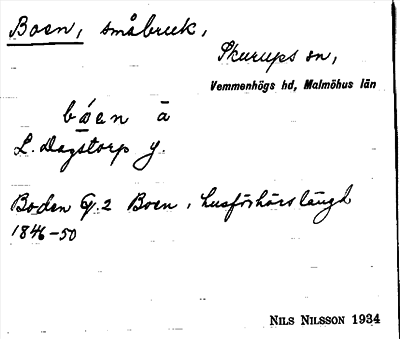 Boen, småbruk,
Skurups sn,
Vemmenhögs hd, Malmöhus län
bóen ā
L. Dagstorp y.
Boden Q. 2 Boen, husförhörslängd
1846-50
NILS NILSSON 1934